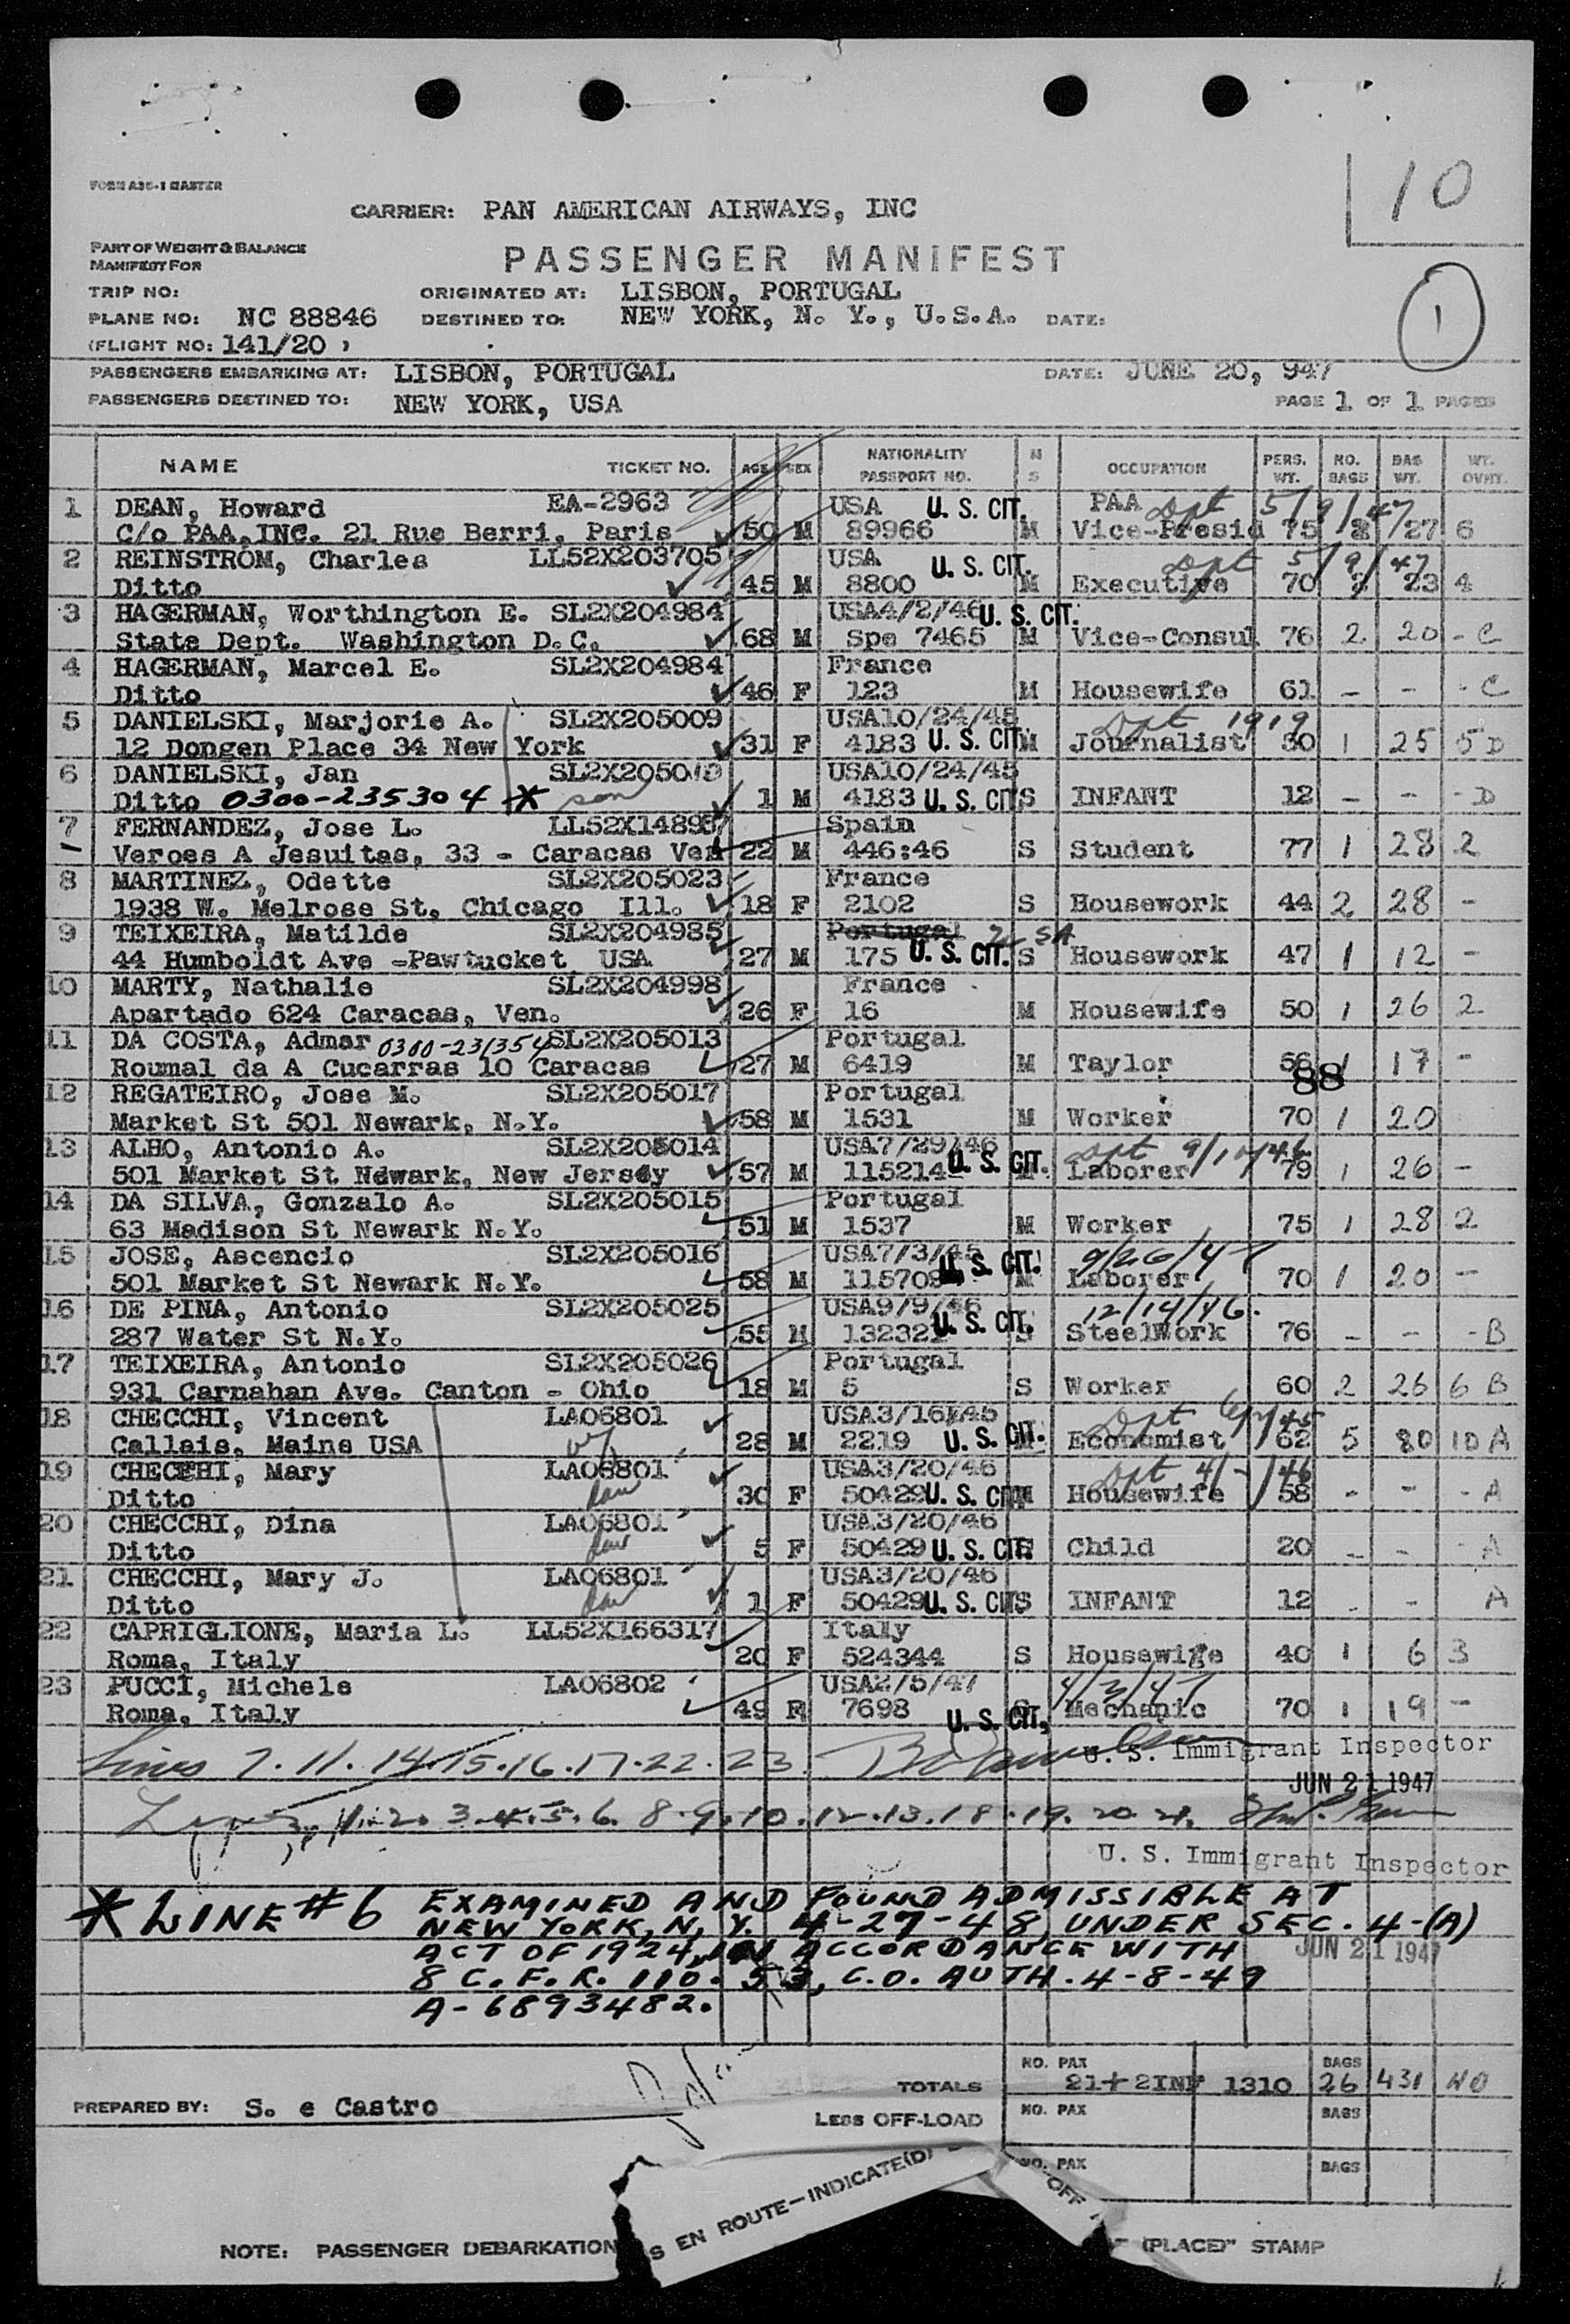 FORM A36-1 MASTER
10
CARRIER: PAN AMERICAN AIRWAYS, INC
PART OF WEIGHT & BALANCE
MANIFEST FOR
PASSENGER MANIFEST
TRIP NO:
ORIGINATED AT: LISBON, PORTUGAL
1
PLANE NO: NC 88846 DESTINED TO: NEW YORK, N. Y., U.S.A. DATE:
(FLIGHT NO: 141/20 )
PASSENGERS EMBARKING AT: LISBON, PORTUGAL DATE: JUNE 20, 947
PASSENGERS DESTINED TO: NEW YORK, USA PAGE 1 OF 1 PAGES
NAME TICKET NO. AGE SEX NATIONALITY PASSPORT NO. M S OCCUPATION PERS. WT. NO. BAGS BAG WT. WT. OVHT.
1 DEAN, Howard EA-2963 USA U. S. CIT. PAA Dpt 5/9/47
C/o PAA,INC. 21 Rue Berri, Paris 50 M 89966 M Vice-Presid 75 27 6
2 REINSTROM, Charles LL52X203705 USA U. S. CIT. Dpt 5/9/47
Ditto 45 M 8800 M Executive 70 23 4
3 HAGERMAN, Worthington E. SL2X204984 USA4/2/46 U. S. CIT.
State Dept. Washington D.C. 68 M Spe 7465 M Vice-Consul 76 2 20 - C
4 HAGERMAN, Marcel E. SL2X204984 France
Ditto 46 F 123 M Housewife 61 - - - C
5 DANIELSKI, Marjorie A. SL2X205009 USA10/24/45 Dpt 1919
12 Dongen Place 34 New York 31 F 4183 U. S. CIT. M Journalist 50 1 25 5 D
6 DANIELSKI, Jan USA10/24/45
Ditto 0300-235304 * son 1 M 4183 U. S. CIT S INFANT 12 - - - D
7 FERNANDEZ, Jose L. Spain
Veroes A Jesuitas, 33 - Caracas Ven 22 M 446:46 S Student 77 1 28 2
8 MARTINEZ, Odette SL2X205023 France
1938 W. Melrose St, Chicago Ill. 18 F 2102 S Housework 44 2 28 -
9 TEIXEIRA, Matilde SL2X204985 Portugal USA
44 Humboldt Ave -Pawtucket USA 27 M 175 U. S. CIT. S Housework 47 1 12 -
10 MARTY, Nathalie SL2X204998 France
Apartado 624 Caracas, Ven. 26 F 16 M Housewife 50 1 26 2
11 DA COSTA, Admar 0300-231354 SL2X205013 Portugal
Roumal da A Cucarras 10 Caracas 27 M 6419 M Taylor 56 1 17 -
88
12 REGATEIRO, Jose M. SL2X205017 Portugal
Market St 501 Newark, N.Y. 58 M 1531 M Worker 70 1 20
13 ALHO, Antonio A. SL2X205014 USA7/29/46 Dpt
501 Market St Newark, New Jersey 57 M 115214 U. S. CIT. Laborer 79 1 26 -
14 DA SILVA, Gonzalo A. SL2X205015 Portugal
63 Madison St Newark N.Y. 51 M 1537 M Worker 75 1 28 2
15 JOSE, Ascencio SL2X205016 USA7/3/45 9/26/47
501 Market St Newark N.Y. 58 M 115709 U. S. CIT. M Laborer 70 1 20 -
16 DE PINA, Antonio SL2X205025 USA9/9/46 12/14/46.
287 Water St N.Y. 55 M U. S. CIT. SteelWork 76 - - - B
17 TEIXEIRA, Antonio SL2X205026 Portugal
931 Carnahan Ave. Canton - Ohio 18 M 5 S Worker 60 2 26 6 B
18 CHECCHI, Vincent LA06801 USA3/16/45 Dpt
Callais, Maine USA 28 M 2219 U. S. CIT. Economist 62 5 80 10 A
19 CHECCHI, Mary LA06801 USA3/20/46 Dpt 4/-/46
Ditto 30 F 50429 U. S. CIT Housewife 58 - - - A
20 CHECCHI, Dina LA06801 USA3/20/46
Ditto 5 F 50429 U. S. CIT. Child 20 - - A
21 CHECCHI, Mary J. LA06801 USA3/20/46
Ditto 1 F 50429 U. S. CIT S INFANT 12 - - A
22 CAPRIGLIONE, Maria L. LL52X166317 Italy
Roma, Italy 20 F 524344 S Housewife 40 1 6 3
23 PUCCI, Michele LA06802 USA2/5/47 4/3/47
Roma, Italy 49 7698 U. S. CIT. Mechanic 70 1 19 -
Lines 7.11.14.15.16.17.22.23 U. S. Immigrant Inspector
JUN 21 1947
1.2.3.4.5.6.8.9.10.12.13.18.19.20.21.
U. S. Immigrant Inspector
* LINE #6 EXAMINED AND FOUND ADMISSIBLE AT
NEW YORK, N.Y. 4-27-48 UNDER SEC. 4-(A)
ACT OF 1924, IN ACCORDANCE WITH JUN 21 1947
8 C.F.R. 110.53, C.O. AUTH. 4-8-49
A-6893482.
TOTALS NO. PAX 21+2INF 1310 BAGS 26 431 40
PREPARED BY: S. e Castro
LESS OFF-LOAD NO. PAX BAGS
NO. PAX BAGS
S EN ROUTE-INDICATE(D)
OFF
NOTE: PASSENGER DEBARKATION (PLACE)" STAMP